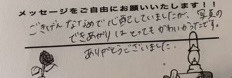 メッセージをご自由にお願いいたします!!
ごきげんななめで心配していましたが、写真の
できあがりはとってもかわいかったです。
ありがとうございました。